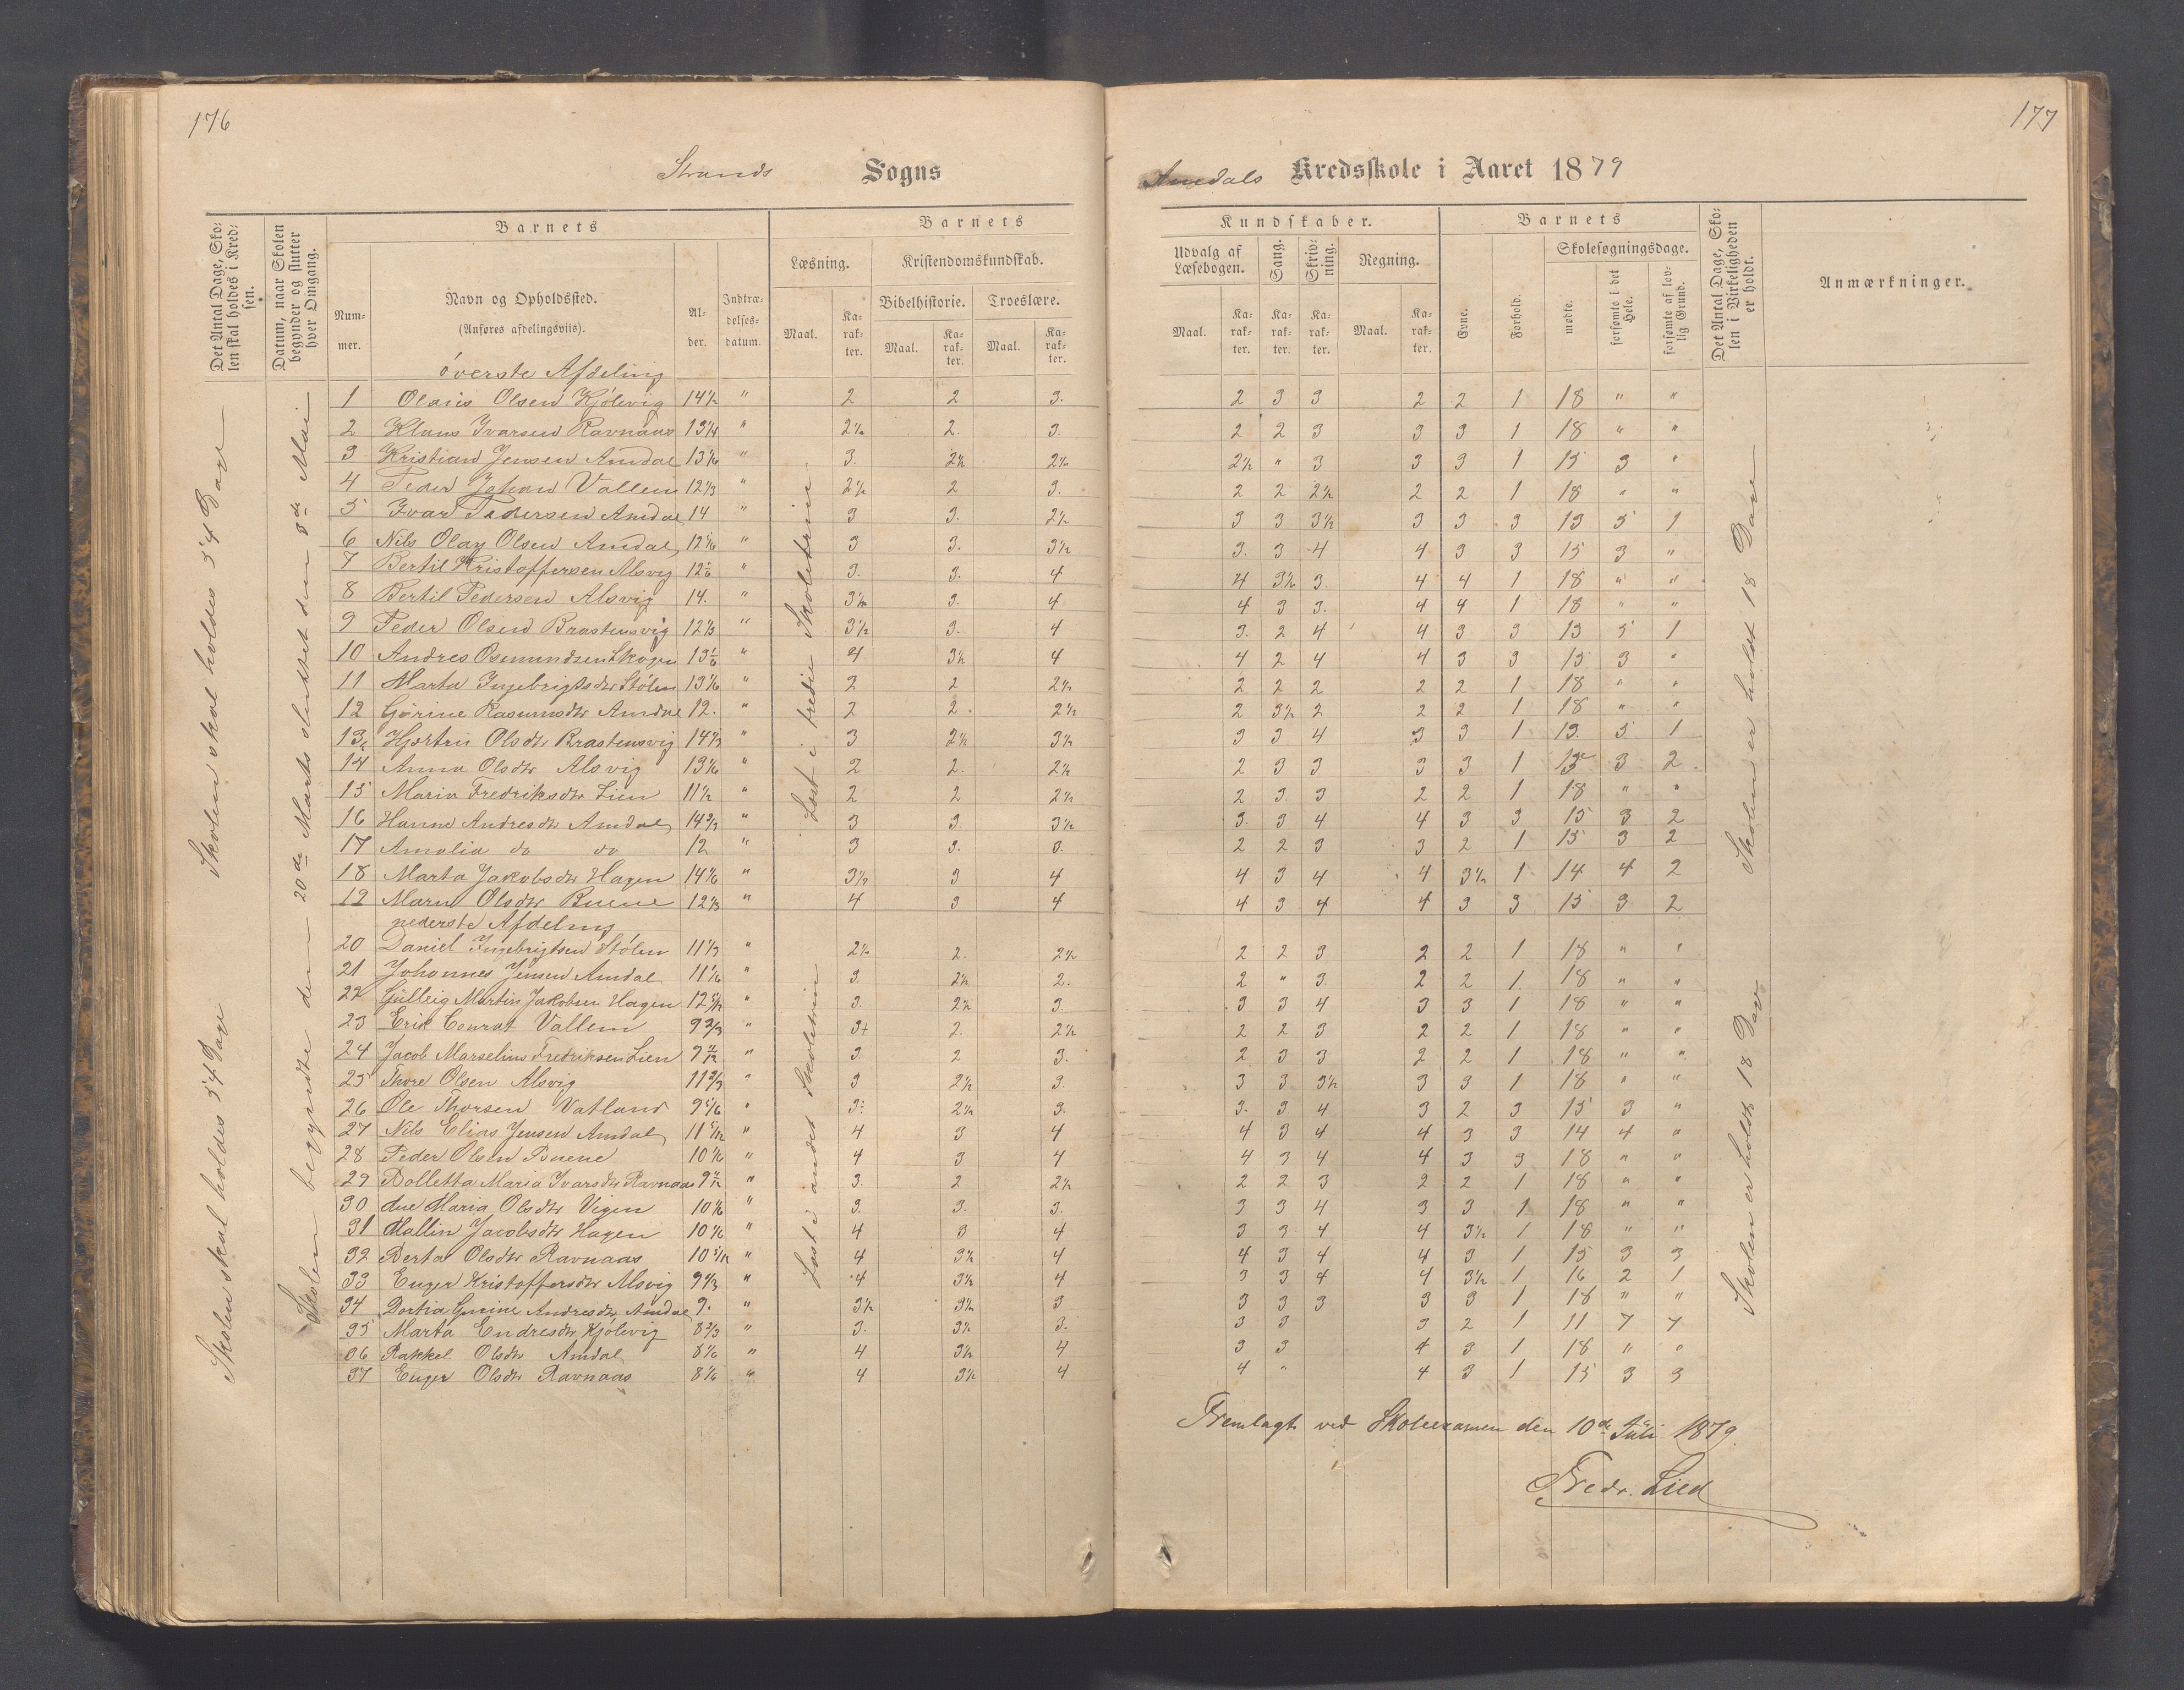 176
177
Strands Sogns
Amdals Kredsskole i Aaret 1879
Det Antal Dage, Skolen skal holdes i Kredsen.
Datum, naar Skolen begynder og slutter hver Omgang.
Barnets
Nummer.
Navn og Opholdssted.
(Anføres afdelingsviis).
Alder.
Indtrædelsesdatum.
Barnets
Læsning.
Kristendomskundskab.
Bibelhistorie.
Troeslære.
Maal. Karakter. Maal. Karakter. Maal. Karakter.
Kundskaber.
Udvalg af Læsebogen.
Sang.
Skrivning.
Regning.
Maal. Karakter. Karakter. Karakter. Maal. Karakter.
Barnets
Evne.
Forhold.
Skolesøgningsdage.
mødte.
forsømte i det Hele.
forsømte af lovlig Grund.
Det Antal Dage, Skolen i Virkeligheden er holdt.
Anmærkninger.
Skolen skal holdes 54 Dage
Skolen skal holdes 54 Dage
Skolen begyndte den 20de Marts sluttet den 8de Mai
Læst i tredie Skoletrin
Læst i andet Skoletrin
Skolen er holdt 18 Dage
Skolen er holdt 18 Dage
øverste Afdeling
1 Olaus Olsen Kjølevig 14½ " 2 2 3. 2 3 3 2 2 1 18 " "
2 Klaus Ivarsen Ravnaas 13¼ " 2½ 2. 3. 2 2 3 3 3 1 18 " "
3 Kristian Jensen Amdal 13 1/6 " 3. 2½ 2½ 2½ " 3 3 3 1 15 3 "
4 Peder Johan Vallem 12 1/3 " 2½ 2 3. 2 2 2½ 2 2 1 18 " "
5 Ivar Pedersen Amdal 14 " 3 3. 2½ 3 3 3½ 3 3 3 13 5 1
6 Nils Olay Olsen Amdal 12 5/6 " 3 3. 3½ 3. 3 4 4 3 3 15 3 "
7 Bertil Kristoffersen Alsvig 12 1/6 " 3. 3. 4 4 3½ 3. 4 4 1 18 " "
8 Bertil Pedersen Alsvig 14. " 3½ 3. 4 4 3 3. 4 4 1 18 " "
9 Peder Olsen Brastensvig 12 1/3 " 3½ 3. 4 3. 2 4 4 3 3 13 5 1
10 Andres Osmundsen Skogen 13 1/6 " 4 3½ 4 4 2 4 4 3 3 15 3 "
11 Marta Ingebrigtsdtr Stølen 13 1/6 " 2 2 2½ 2 2 2 2 2 1 18 " "
12 Gørine Rasmusdtr Amdal 12. " 2 2. 2½ 2 3½ 2 2 2 1 18 " "
13 Hjørtru Olsdtr Brastensvig 14 1/3 " 3 2½ 3½ 3 3 4 3 3 1 13. 5 1
14 Anna Olsdtr Alsvig 13 1/6 " 2 2. 2½ 2 3 3 3 3 1 3 2
15 Maria Fredriksdtr Lien 11½ " 2 2 2½ 2 3. 3 2 2 1 18 " "
16 Hanne Andresdtr Amdal 14 2/3 " 3 3. 3½ 3. 3 4 4 3 3 15 3 2
17 Amalia do do 12 " 3 3. 3. 2 2 3 3 2 1 15 3 2
18 Marta Jakobsdtr Hagen 14 1/6 " 3½ 3 4 4 3 4 4 3½ 1 14 4 2
19 Maru Olsdtr Buene 12 1/3 " 4 3 4 4 3 4 4 3 3 15 3 2
nederste Afdeling
20 Daniel Ingebrigtsen Stølen 11 1/3 " 2½ 2. 2½ 2 2 3 2 2 1 18 " "
21 Johannes Jensen Amdal 11 1/6 " 3. 2½ 2. 2 " 3. 2 2 1. 18 " "
22 Gulleig Martin Jakobsen Hagen 12 5/12 " 3. 2½ 3. 3 3 4 3 3 1 18 " "
23 Erik Conrat Vallem 9 2/3 " 3+ 2. 2½ 2 2 3 2 2 1 18 " "
24 Jacob Marselius Fredriksen Lien " 3. 2 3. 2 3 3 2 2 1 18 " "
25 Thore Olsen Alsvig 11 2/3 " 3 2½ 3. 3 3 3½ 3 3 1 18 " "
26 Ole Thorsen Vatland 9 5/6 " 3. 2½ 3. 3. 3. 4 3 2 3 15 3 "
27 Nils Elias Jensen Amdal 11 5/12 " 4 3 4 4 3 4 4 3 3 14 4 "
28 Peder Olsen Buene 10 1/6 " 4 3 4 4 3 4 4 3 3 18 " "
29 Bolletta Maria Ivarsdtr Ravnaas " 3. 2 2½ 2 2 3 2 2 1 18 " "
30 Maria Olsdtr Vigen 10 1/6 " 3. 3. 3. 3 3 4 3 3 1 18 " "
31 Mallin Jacobsdtr Hagen 10 1/6 " 4 3 4 3 3 4 4 3½ 1 18 " "
32 Berta Olsdtr Ravnaas 10 5/12 " 4 3½ 4 4 3 4 4 3 1 15 3 3
33 Enger Kristoffersdtr Alsvig 9 1/3 " 4 3½ 4 3 3 4 4 3½ 1 16 2 1
34 Dortia Gurine Andresdtr Amdal 9. " 3½ 3½ 3 3 3 3 3 3 1 18 " "
35 Marta Endresdtr Kjølevig 8 2/3 " 3. 3½ 3. 3 3 3 2 1 11 7 7
36 Rakkel Olsdtr Amdal 8 1/6 " 4 3½ 4 3 3 4 3 1 18 " "
37 Enger Olsdtr Ravnaas 8 1/6 " 4 3½ 4 4 " 4 3 1 15 3 3
Fremlagt ved Skoleexamen den 10de Juli 1879.
Fredr. Lied